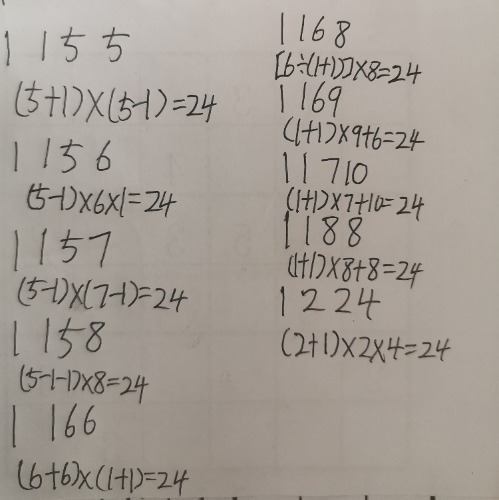 1 1 5 5
(5+1)×(5-1)=24
1 1 5 6
(5-1)×6×1=24
1 1 5 7
(5-1)×(7-1)=24
1 1 5 8
(5-1-1)×8=24
1 1 6 6
(6+6)×(1+1)=24
1 1 6 8
[6÷(1+1)]×8=24
1 1 6 9
(1+1)×9+6=24
1 1 7 10
(1+1)×7+10=24
1 1 8 8
(1+1)×8+8=24
1 2 2 4
(2+1)×2×4=24